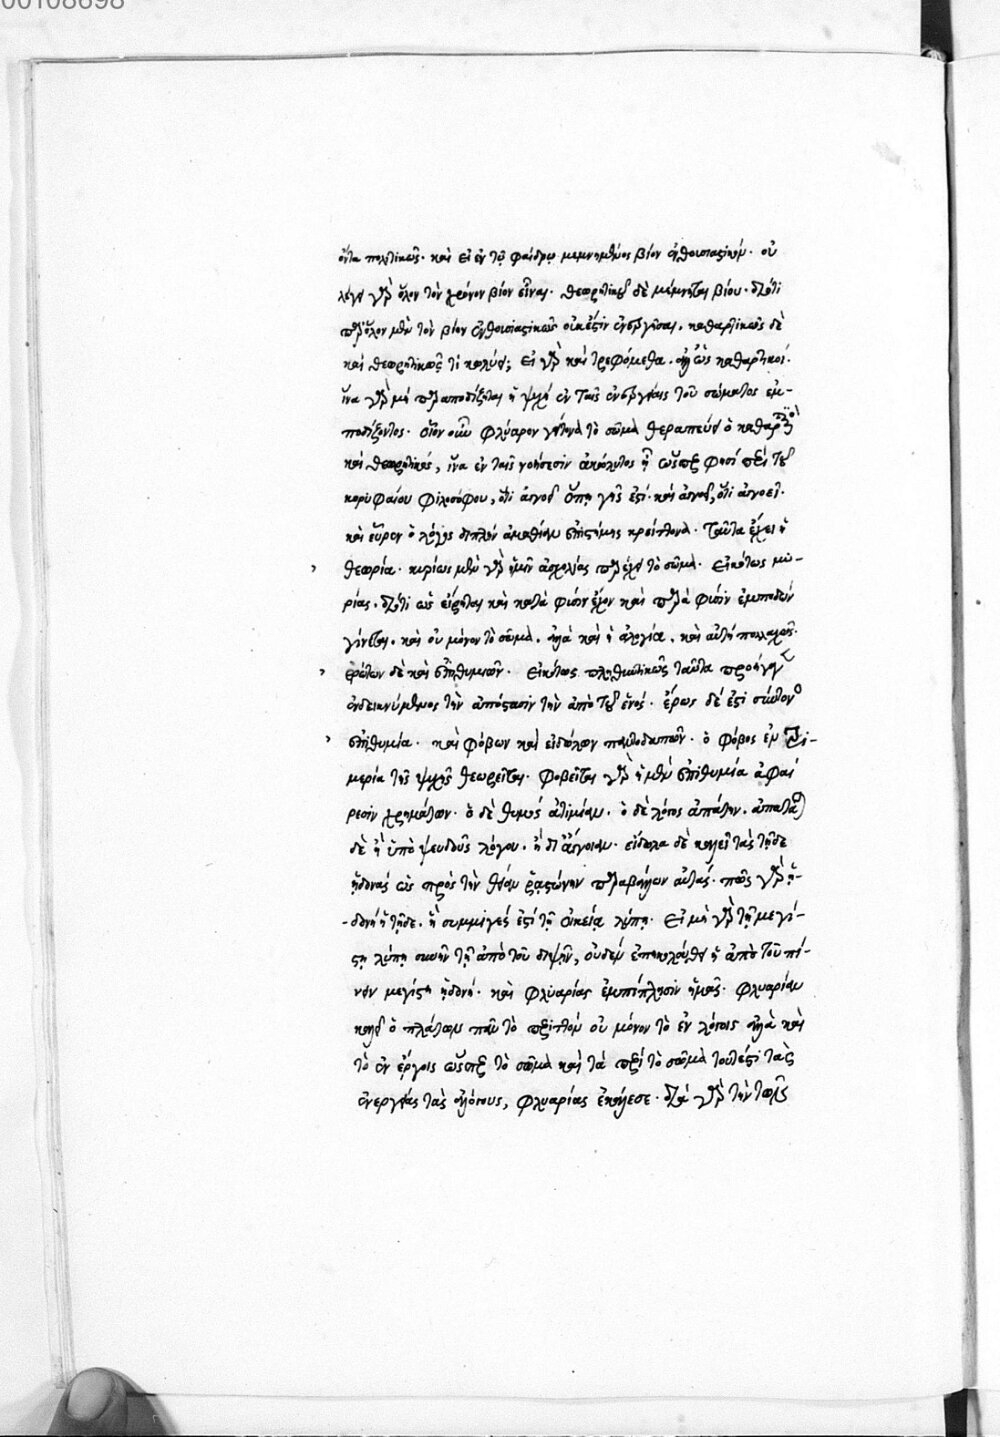 00108698
ὄντα πολιτικῶς. καὶ εἰ ἐν τῷ φαίδρῳ μεμνημένος βίον ἐνθουσιαστικόν. οὐ
λέγει γὰρ ὅλον τὸν χρόνον βίον εἶναι. θεωρητικοῦ δὲ μέμνηται βίου. διότι
παρ' ὅλον μὲν τὸν βίον ἐνθουσιαστικῶς οὐκ ἔστιν ἐνεργῆσαι. καθαρτικῶς δὲ
καὶ θεωρητικῶς τί κωλύει; εἰ γὰρ καὶ τρεφόμεθα. ἀλλ' ὡς καθαρτικοί.
ἵνα γὰρ μὴ παραποδίζηται ἡ ψυχὴ ἐν ταῖς ἐνεργείαις τοῦ σώματος ἐμ-
ποδίζοντος. οἷον οὖν φλύαρον γείτονα τὸ σῶμα θεραπεύει ὁ καθαρτικὸς
καὶ θεωρητικός, ἵνα ἐν ταῖς νοήσεσιν ἀκώλυτος ᾖ ὥσπερ φησὶ περὶ τοῦ
κορυφαίου φιλοσόφου, ὅτι ἀγνοεῖ ὅπη γῆς ἐστί. καὶ ἀγνοεῖ, ὅτι ἀγνοεῖ.
καὶ εὗρεν ὁ λόγος διπλῆν ἀμαθίαν ἐπιστήμης κρείττονα. ταῦτα ἔχει ἡ
θεωρία. κυρίως μὲν γὰρ ἡμῖν ἀσχολίας παρέχει τὸ σῶμα. εἰκότως μυ-
ρίας. διότι ὡς εἴρηται καὶ κατὰ φύσιν ἔχον καὶ παρὰ φύσιν ἐμποδὼν
γίνεται. καὶ οὐ μόνον τὸ σῶμα. ἀλλὰ καὶ ἡ ἀλογία. καὶ αὐτὴ πολλαχῶς.
ἐρώτων δὲ καὶ ἐπιθυμιῶν. εἰκότως πληθυντικῶς ταῦτα προήνεγκεν
ἐνδεικνύμενος τὴν ἀπόστασιν τὴν ἀπὸ τοῦ ἑνός. ἔρως δέ ἐστι σύντονος
ἐπιθυμία. καὶ φόβων καὶ εἰδώλων παντοδαπῶν. ὁ φόβος ἐν τρι-
μερίᾳ τῆς ψυχῆς θεωρεῖται. φοβεῖται γὰρ ἡ μὲν ἐπιθυμία ἀφαί
ρεσιν χρημάτων. ὁ δὲ θυμὸς ἀτιμίαν. ὁ δὲ λόγος ἀπάτην. ἀπατᾶται
δὲ ἢ ὑπὸ ψευδοῦς λόγου. ἢ δι' ἄγνοιαν. εἴδωλα δὲ καλεῖ τὰς τῇδε
ἡδονὰς ὡς πρὸς τὴν θείαν ῥᾳστώνην παραβάλλων αὐτάς. πᾶσα γὰρ ἡ-
-δονὴ ἡ τῇδε. ἢ συμμιγής ἐστι τῇ οἰκείᾳ λύπῃ. εἰ μὴ γὰρ τῇ μεγί-
στῃ λύπῃ συνῆν τῇ ἀπὸ τοῦ διψῆν, οὐδὲν ἐπηκολούθει ἡ ἀπὸ τοῦ πί-
νειν μεγίστη ἡδονή. καὶ φλυαρίας ἐμπίπλησιν ἡμᾶς. φλυαρίαν
καλεῖ ὁ πλάτων πᾶν τὸ περιττὸν οὐ μόνον τὸ ἐν λόγοις ἀλλὰ καὶ
τὸ ἐν ἔργοις ὥσπερ τὸ σῶμα καὶ τὰ περὶ τὸ σῶμα τουτέστι τὰς
ἐνεργείας τὰς ἀλόγους, φλυαρίας ἐκάλεσε. διὰ γὰρ τὴν τῶν